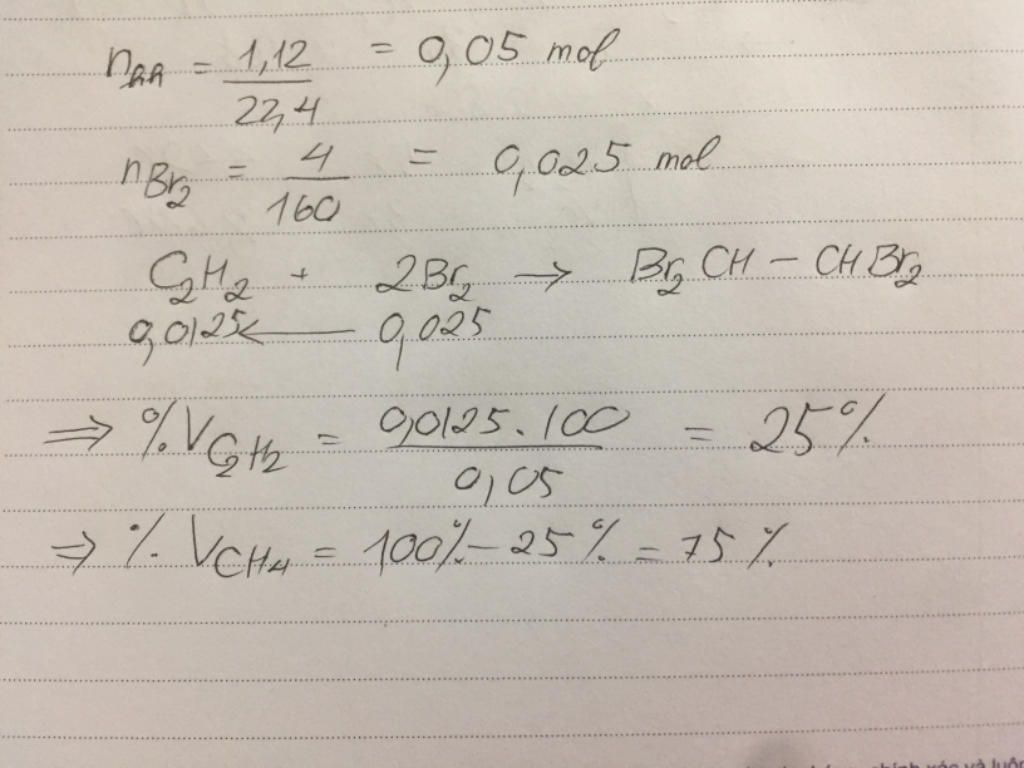 n_hh = 1,12/22,4 = 0,05 mol
n_Br₂ = 4/160 = 0,025 mol
C₂H₂ + 2Br₂ → Br₂CH – CHBr₂
0,0125 ← 0,025
⇒ %V_C₂H₂ = 0,0125.100/0,05 = 25%
⇒ %V_CH₄ = 100% – 25% = 75%
chính xác và luôn